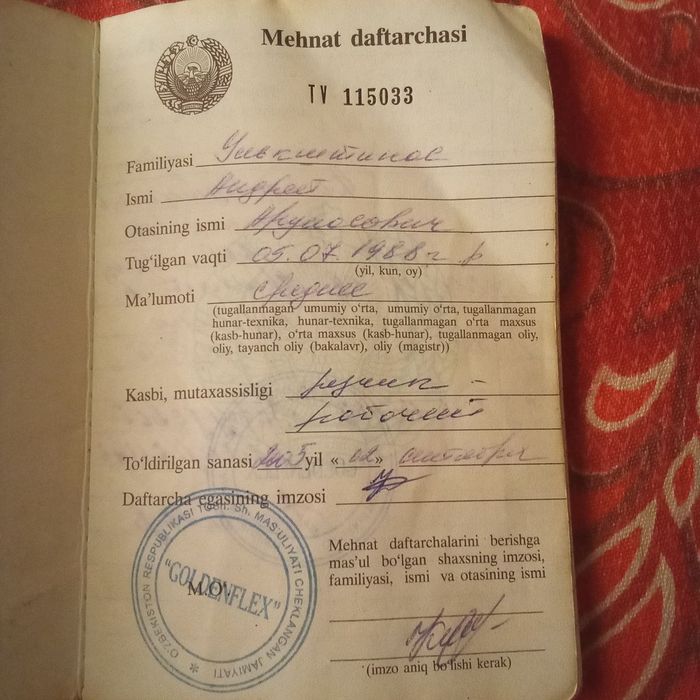 Mehnat daftarchasi
TV 115033
Familiyasi
Ismi Андрей
Otasining ismi
Tug‘ilgan vaqti 05.07.1988 г. р
(yil, kun, oy)
Ma’lumoti среднее
(tugallanmagan umumiy o‘rta, umumiy o‘rta, tugallanmagan
hunar-texnika, hunar-texnika, tugallanmagan o‘rta maxsus
(kasb-hunar), o‘rta maxsus (kasb-hunar), tugallanmagan oliy,
oliy, tayanch oliy (bakalavr), oliy (magistr))
Kasbi, mutaxassisligi резчик -
рабочий
To‘ldirilgan sanasi 2005 yil « 02 » сентября
Daftarcha egasining imzosi
Mehnat daftarchalarini berishga
mas’ul bo‘lgan shaxsning imzosi,
familiyasi, ismi va otasining ismi
(imzo aniq bo‘lishi kerak)
M.O‘.
O‘ZBEKISTON RESPUBLIKASI TOSH. SH. MAS’ULIYATI CHEKLANGAN JAMIYATI
"GOLDENFLEX"